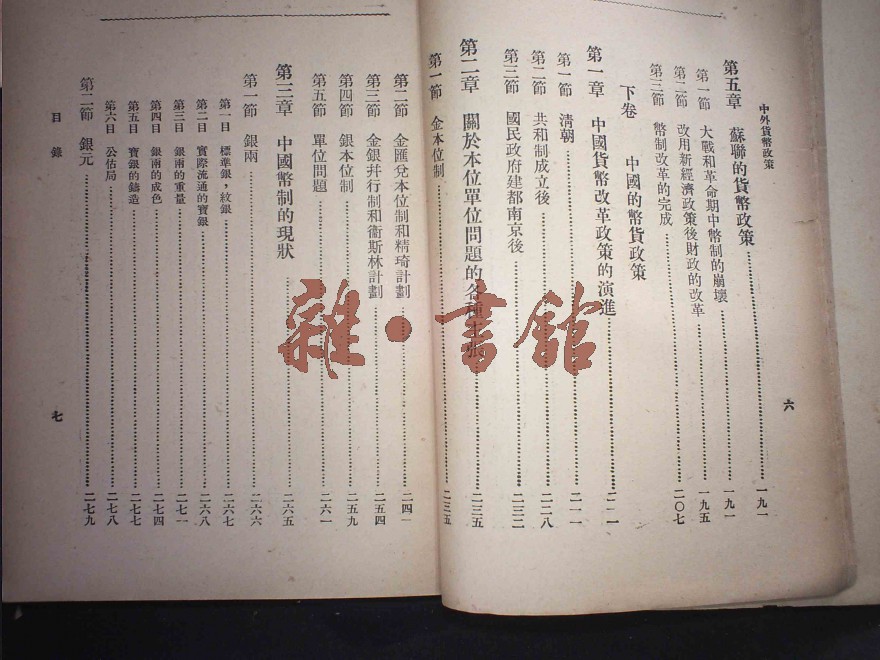 中外貨幣政策
六
第五章 蘇聯的貨幣政策……一九一
第一節 大戰和革命期中幣制的崩壞……一九一
第二節 改用新經濟政策後財政的改革……一九五
第三節 幣制改革的完成……二〇七
下卷 中國的幣貨政策
第一章 中國貨幣改革政策的演進……二一一
第一節 清朝……二一一
第二節 共和制成立後……二二八
第三節 國民政府建都南京後……二三二
第二章 關於本位單位問題的各種主張……二三五
第一節 金本位制……二三五
第二節 金匯兌本位制和精琦計劃……二四一
第三節 金銀幷行制和衞斯林計劃……二五四
第四節 銀本位制……二五九
第五節 單位問題……二六一
第三章 中國幣制的現狀……二六五
第一節 銀兩……二六六
第一目 標準銀，紋銀……二六七
第二目 實際流通的寶銀……二六八
第三目 銀兩的重量……二七一
第四目 銀兩的成色……二七四
第五目 寶銀的鑄造……二七七
第六目 公估局……二七八
第二節 銀元……二七九
目錄
七
雜·書館